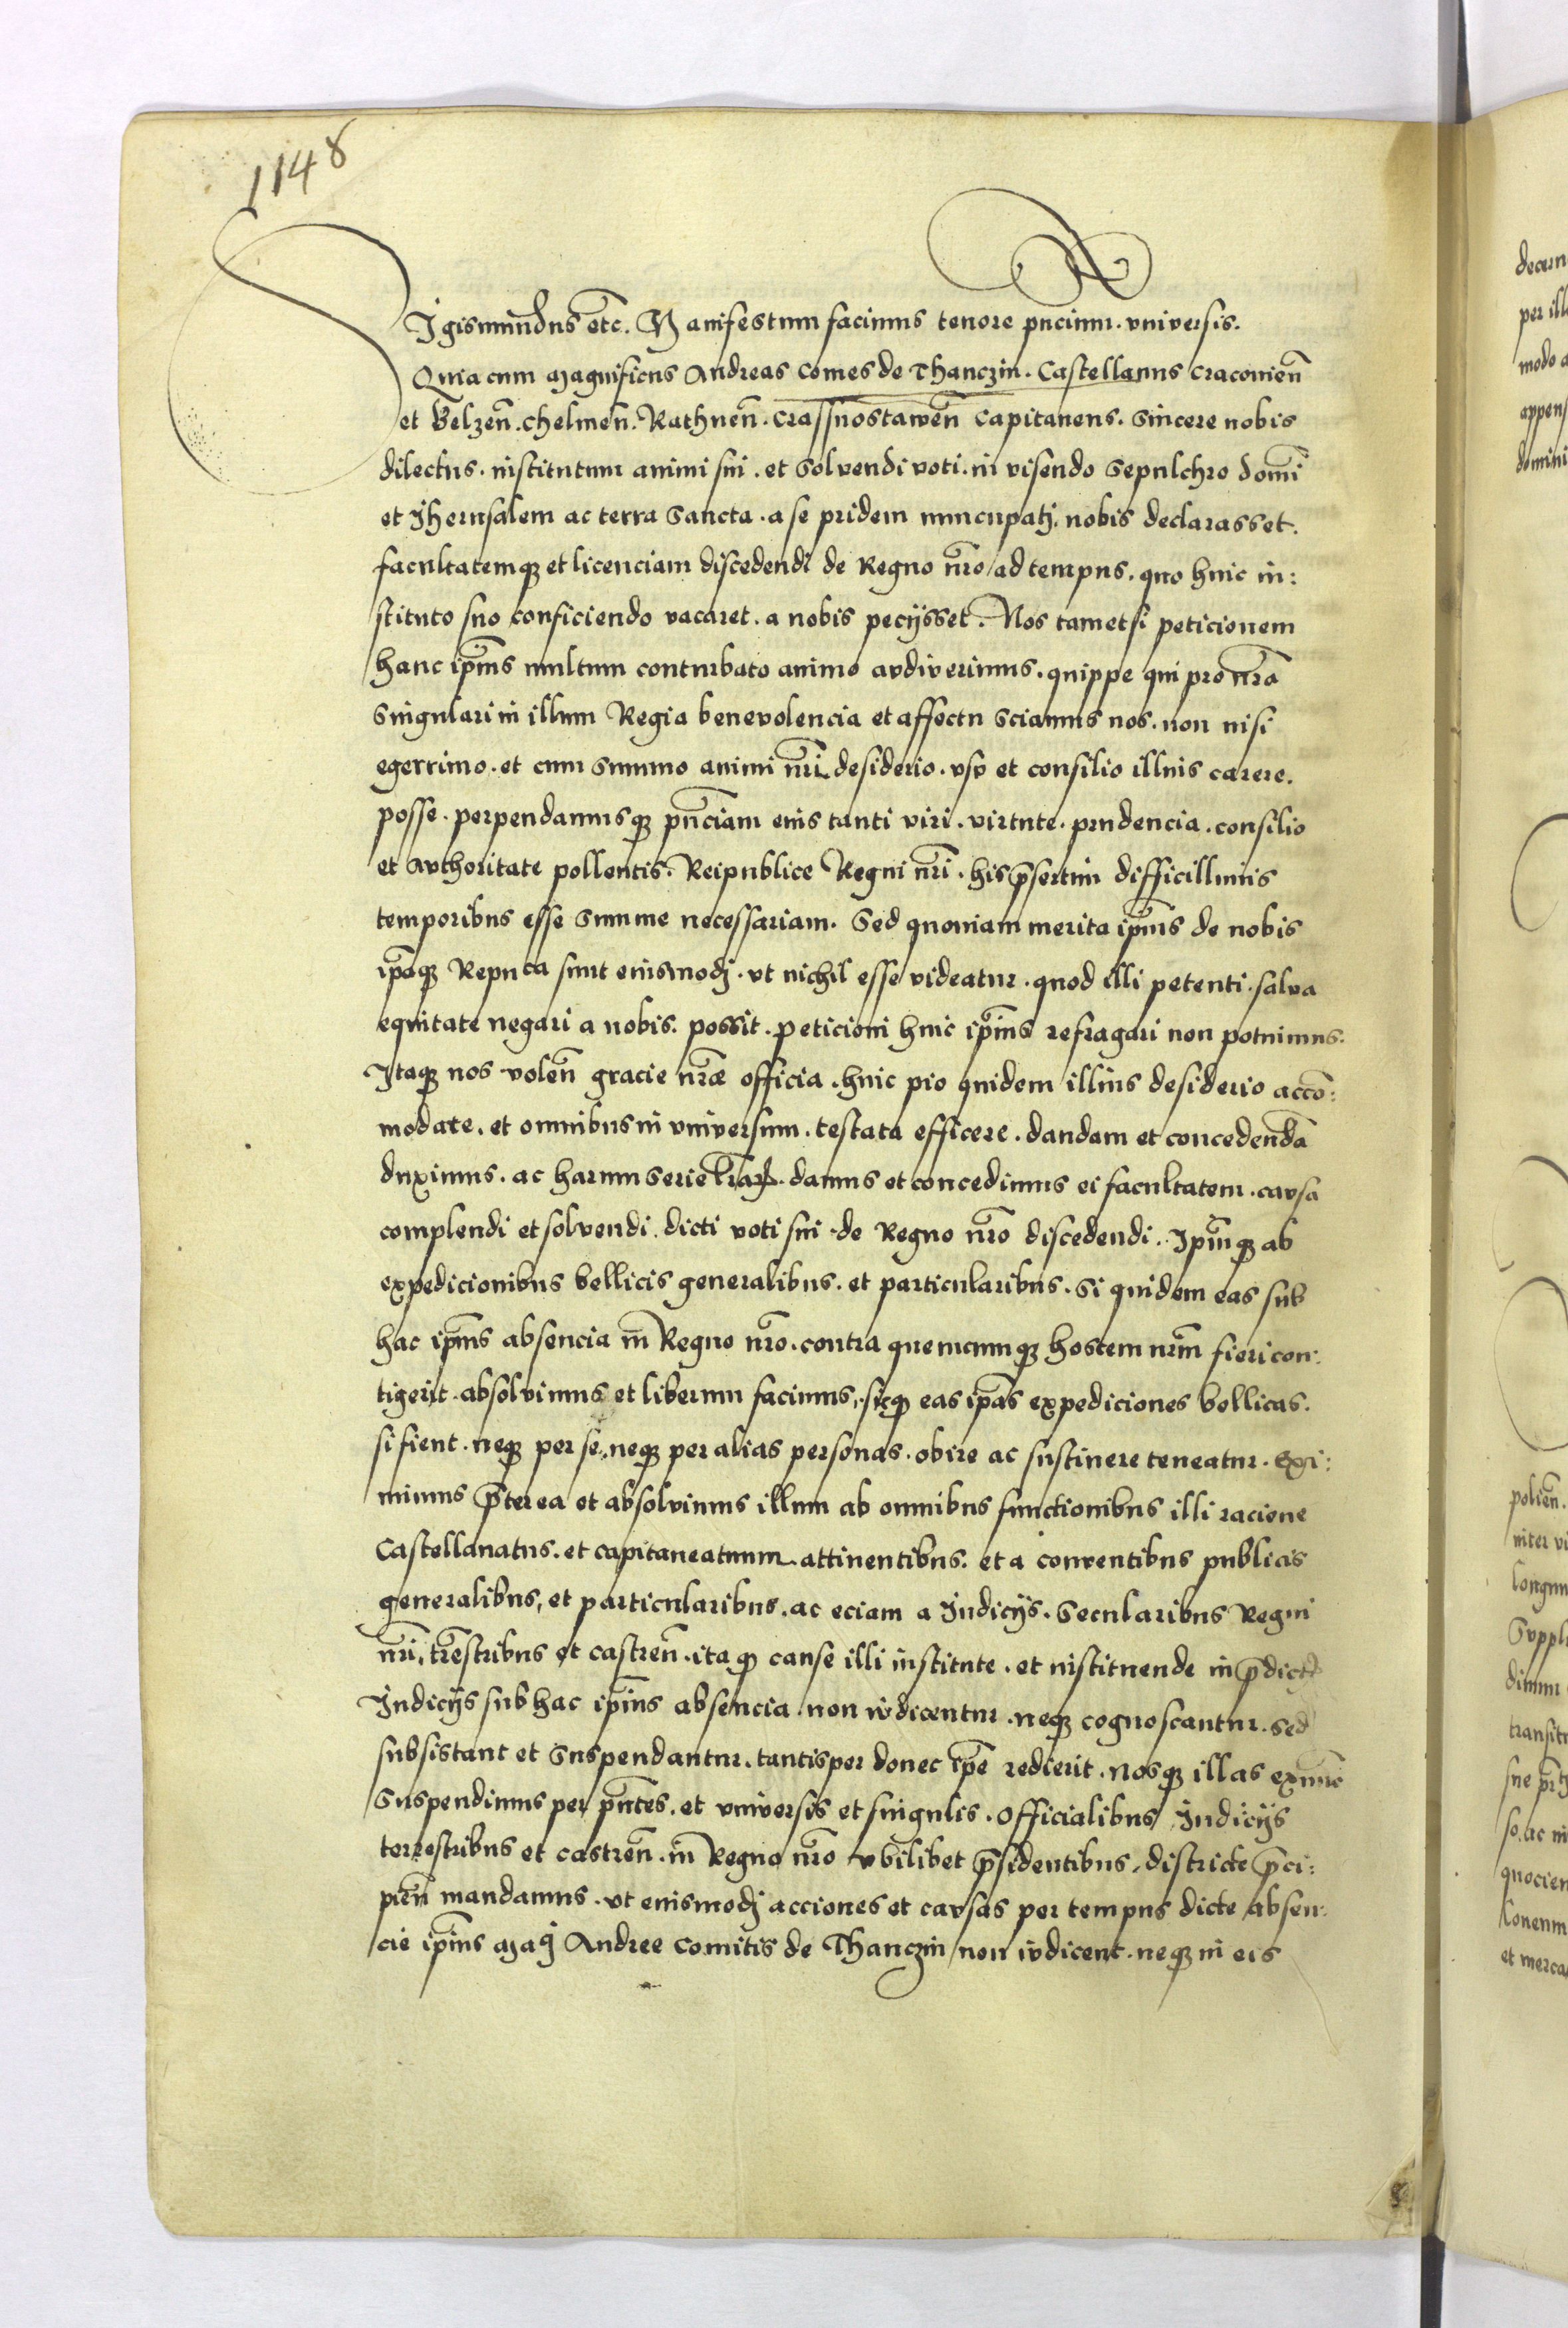 1148
Sigismundus etc̄. Manifestum facimus tenore pn̄cium. vniversis.
Quia cum magnificus Andreas Comes de Thanczin. Castellanus Cracovien̄
et Belzen̄. Chelmen̄. Rathnen̄. Crassnostawen̄ Capitaneus. sincere nobis
dilectus. institutum animi sui. et solvendi voti. in visendo sepulchro domī
et Jherusalem ac terra sancta. a se pridem nuncupatj. nobis declarasset.
facultatemqȝ et licenciam discedendi de Regno nr̄o ad tempus. quo huic in:
stituto suo conficiendo vacaret. a nobis pecijsset. Nos tametsi peticionem
hanc ip̄ius multum conturbato animo avdiverimus. quippe qui pro nr̄a
singulari in illum Regia benevolencia et affectu sciamus nos. non nisi
egerrimo. et cum summo animi nr̄i desiderio. vsv et consilio illius carere.
posse. perpendamusqȝ pn̄ciam eius tanti viri. virtute. prudencia. consilio
et avthoritate pollentis. Reipublice Regni nr̄i. his p̄sertim difficillimis
temporibus esse summe necessariam. Sed quoniam merita ip̄ius de nobis
ip̄aqȝ Repuca sunt eiusmodj. vt nichil esse videatur. quod illi petenti. salva
equitate negari a nobis. possit. peticioni huic ip̄ius refragari non potuimus.
Itaqȝ nos volen̄ gracie nr̄æ officia. huic pio quidem illius desiderio accō:
modate. et omnibus in vniversum. testata efficere. dandam et concedendā
duximus. ac harum serie lr̄aꝝ. damus et concedimus ei facultatem. cavsa
complendi et solvendi. dicti voti sui. de Regno nr̄o discedendi. Ip̄umqȝ ab
expedicionibus bellicis generalibus. et particularibus. si quidem eas sub
hac ip̄ius absencia in Regno nr̄o. contra quemcumqȝ hostem nr̄m fieri con:
tigerit. absolvimus et liberum facimus. sicqȝ eas ip̄as expediciones bellicas.
si fient. neqȝ per se, neqȝ per alias personas. obire ac sustinere teneatur. Exi:
mimus p̄terea et absolvimus illum ab omnibus functionibus illi racione
Castellanatus. et capitaneatuum attinentibus. et a conventibus publicis
generalibus, et particularibus. ac eciam a Iudicijs. secularibus Regni
nr̄i, tr̄estribus et castren̄. ita qȝ cause illi institute. et instituende in
Iudicijs sub hac ip̄ius absencia. non ivdicentur. neqȝ cognoscantur. sed
subsistant et suspendantur. tantisper donec ip̄e redierit. nosqȝ illas
suspendimus per pn̄tes. et vniversis et singulis. officialibus Iudicijs
terrestribus et castren̄. in Regno nr̄o vbilibet p̄sidentibus, districte p̄ci:
pien̄ mandamus. vt eiusmodj acciones et cavsas per tempus dicte absen:
cie ip̄ius maḡ Andree Comitis de Thanczin non ivdicent. neqȝ in eis